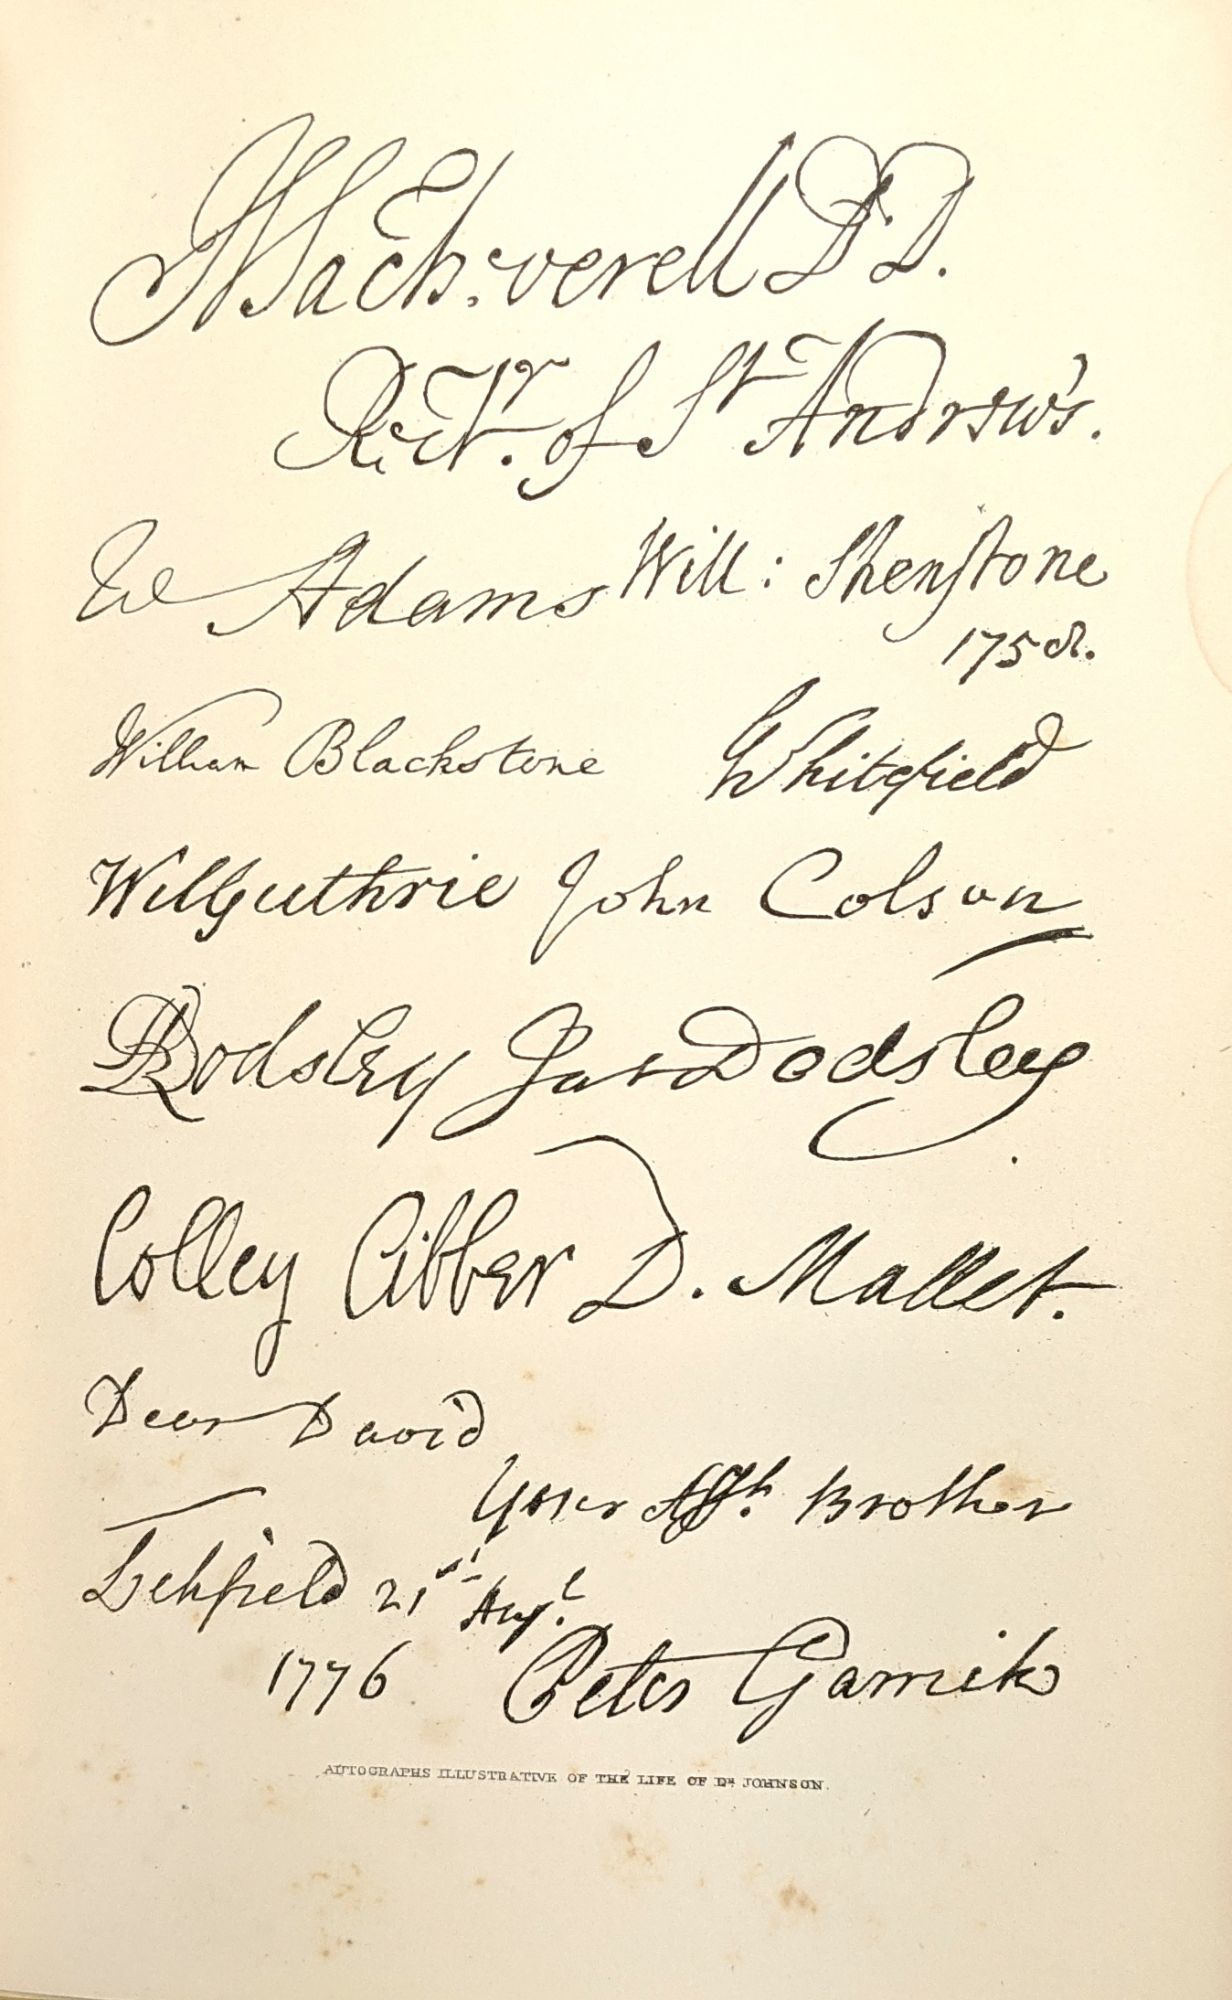 HSacheverell D.D.
Rectr. of St Andrew's.
W Adams Will: Shenstone
1758.
William Blackstone Whitefield
Will Guthrie John Colson
RDodsley Jas Dodsley
Colley Cibber D. Mallet.
Dear David
Your Affte. Brother
Lichfield 21st Augt.
1776 Peter Garrick
AUTOGRAPHS ILLUSTRATIVE OF THE LIFE OF DR. JOHNSON.